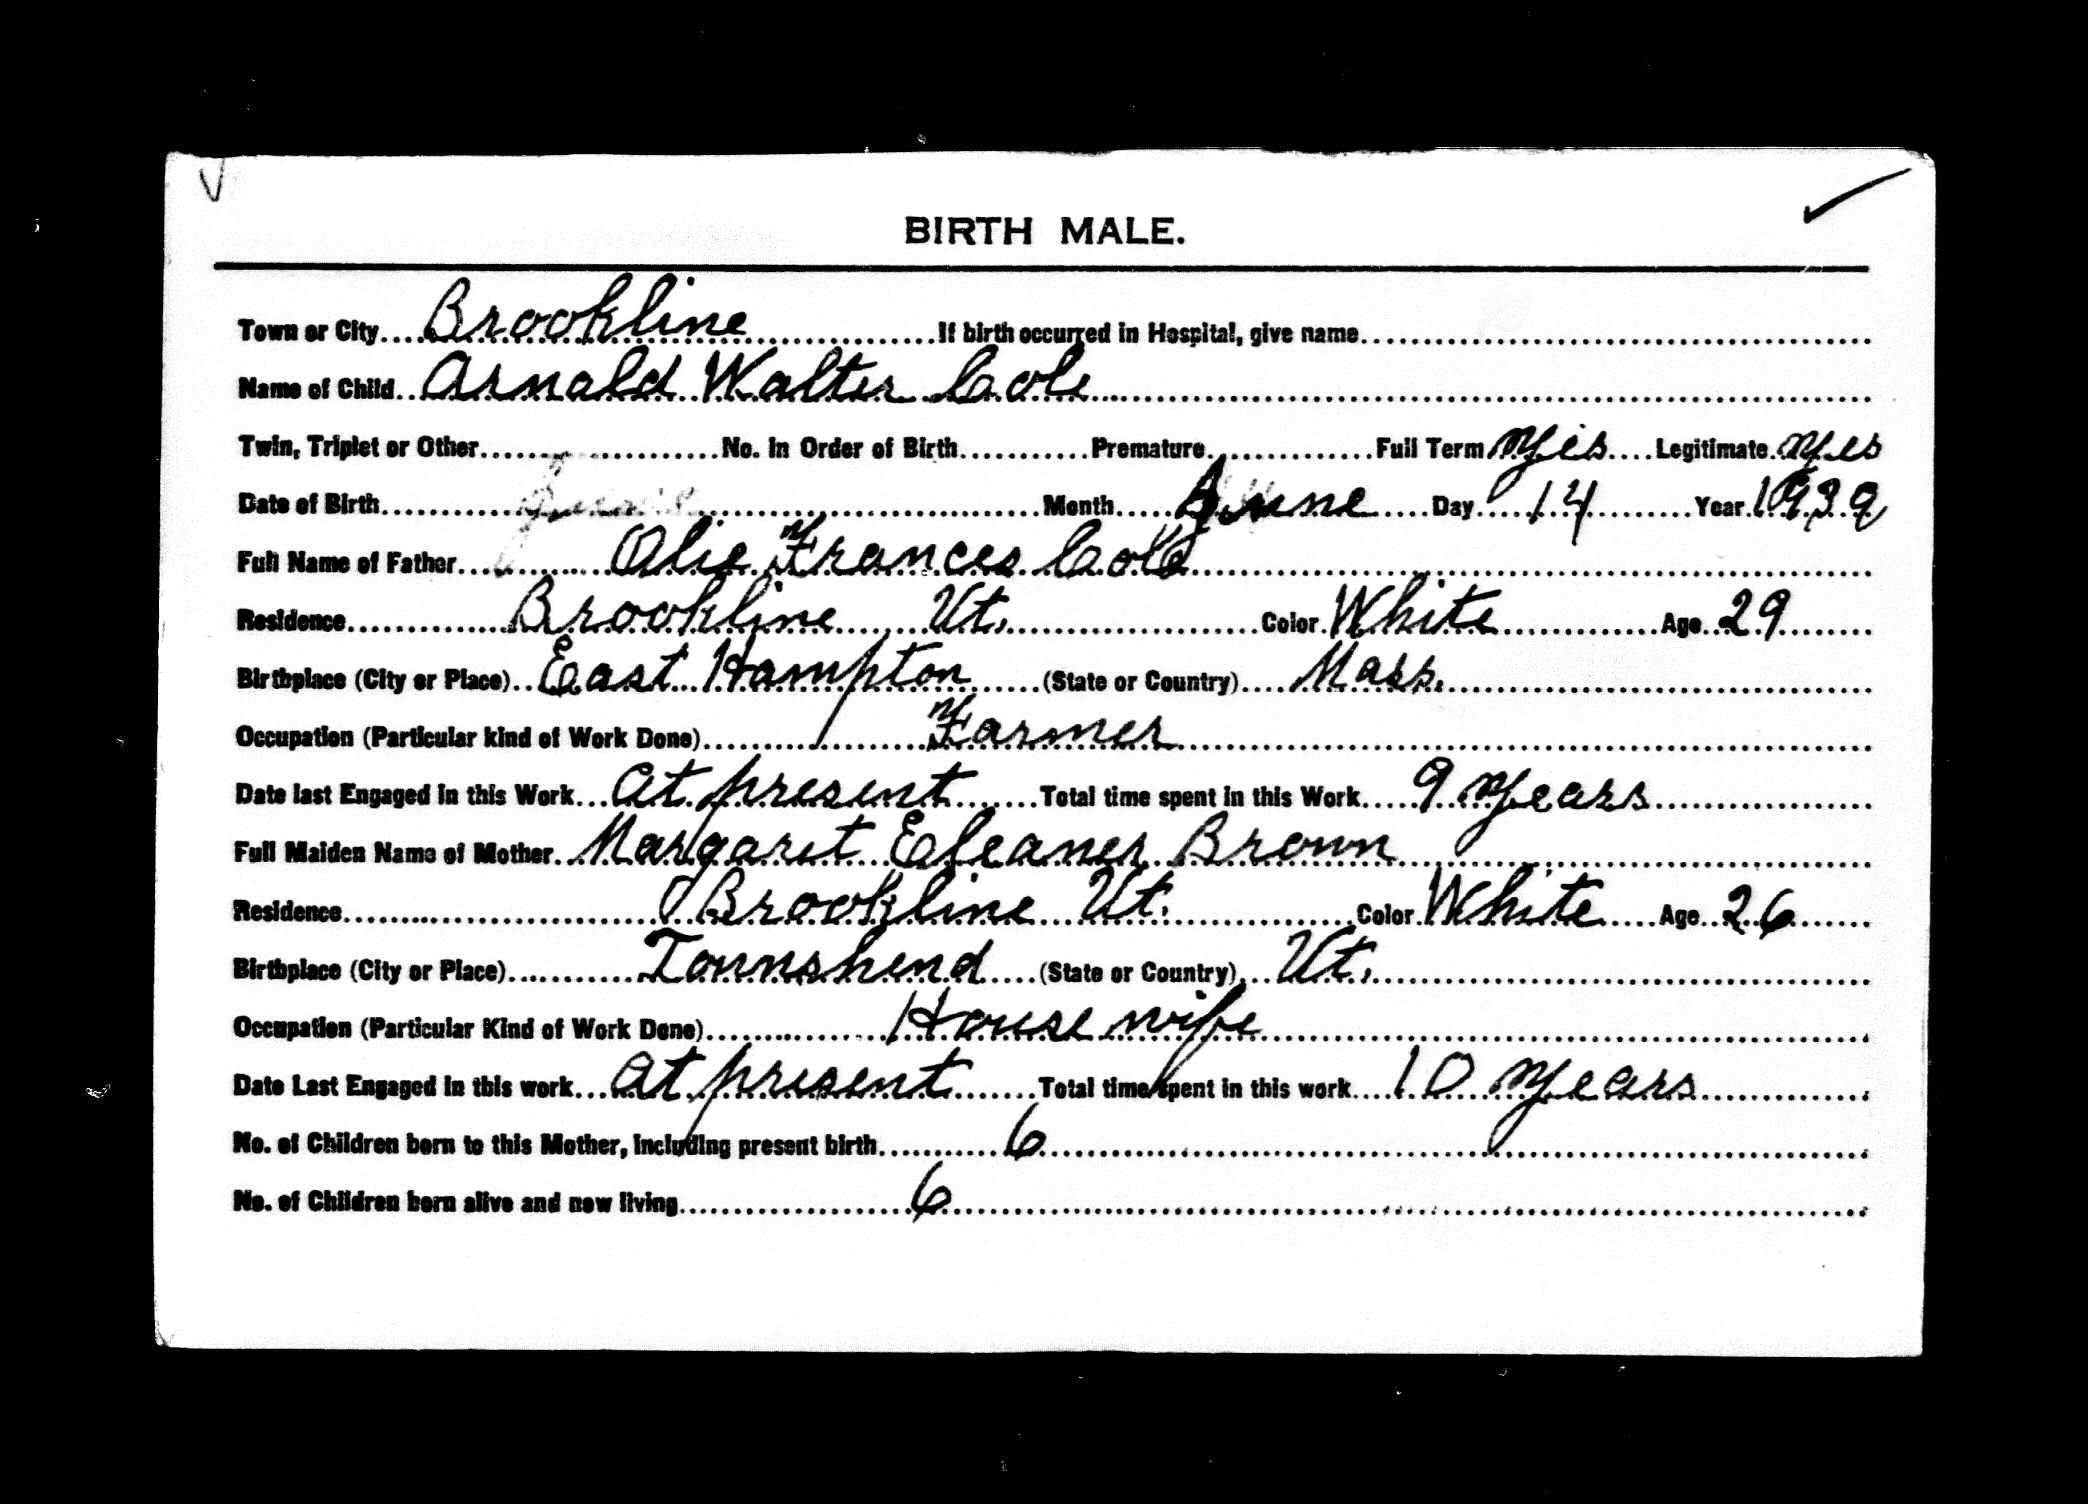 BIRTH MALE.
Town or City Brookline If birth occurred in Hospital, give name
Name of Child Arnald Walter Cole
Twin, Triplet or Other No. in Order of Birth Premature Full Term yes Legitimate yes
Date of Birth Month June Day 14 Year 1939
Full Name of Father Olie Frances Cole
Residence Brookline Vt. Color White Age 29
Birthplace (City or Place) East Hampton (State or Country) Mass.
Occupation (Particular kind of Work Done) Farmer
Date last Engaged in this Work at present Total time spent in this Work 9 years
Full Maiden Name of Mother Margaret Eleaner Brown
Residence Brookline Vt. Color White Age 26
Birthplace (City or Place) Townshend (State or Country) Vt.
Occupation (Particular Kind of Work Done) House wife
Date Last Engaged in this work at present Total time spent in this work 10 years
No. of Children born to this Mother, including present birth 6
No. of Children born alive and now living 6